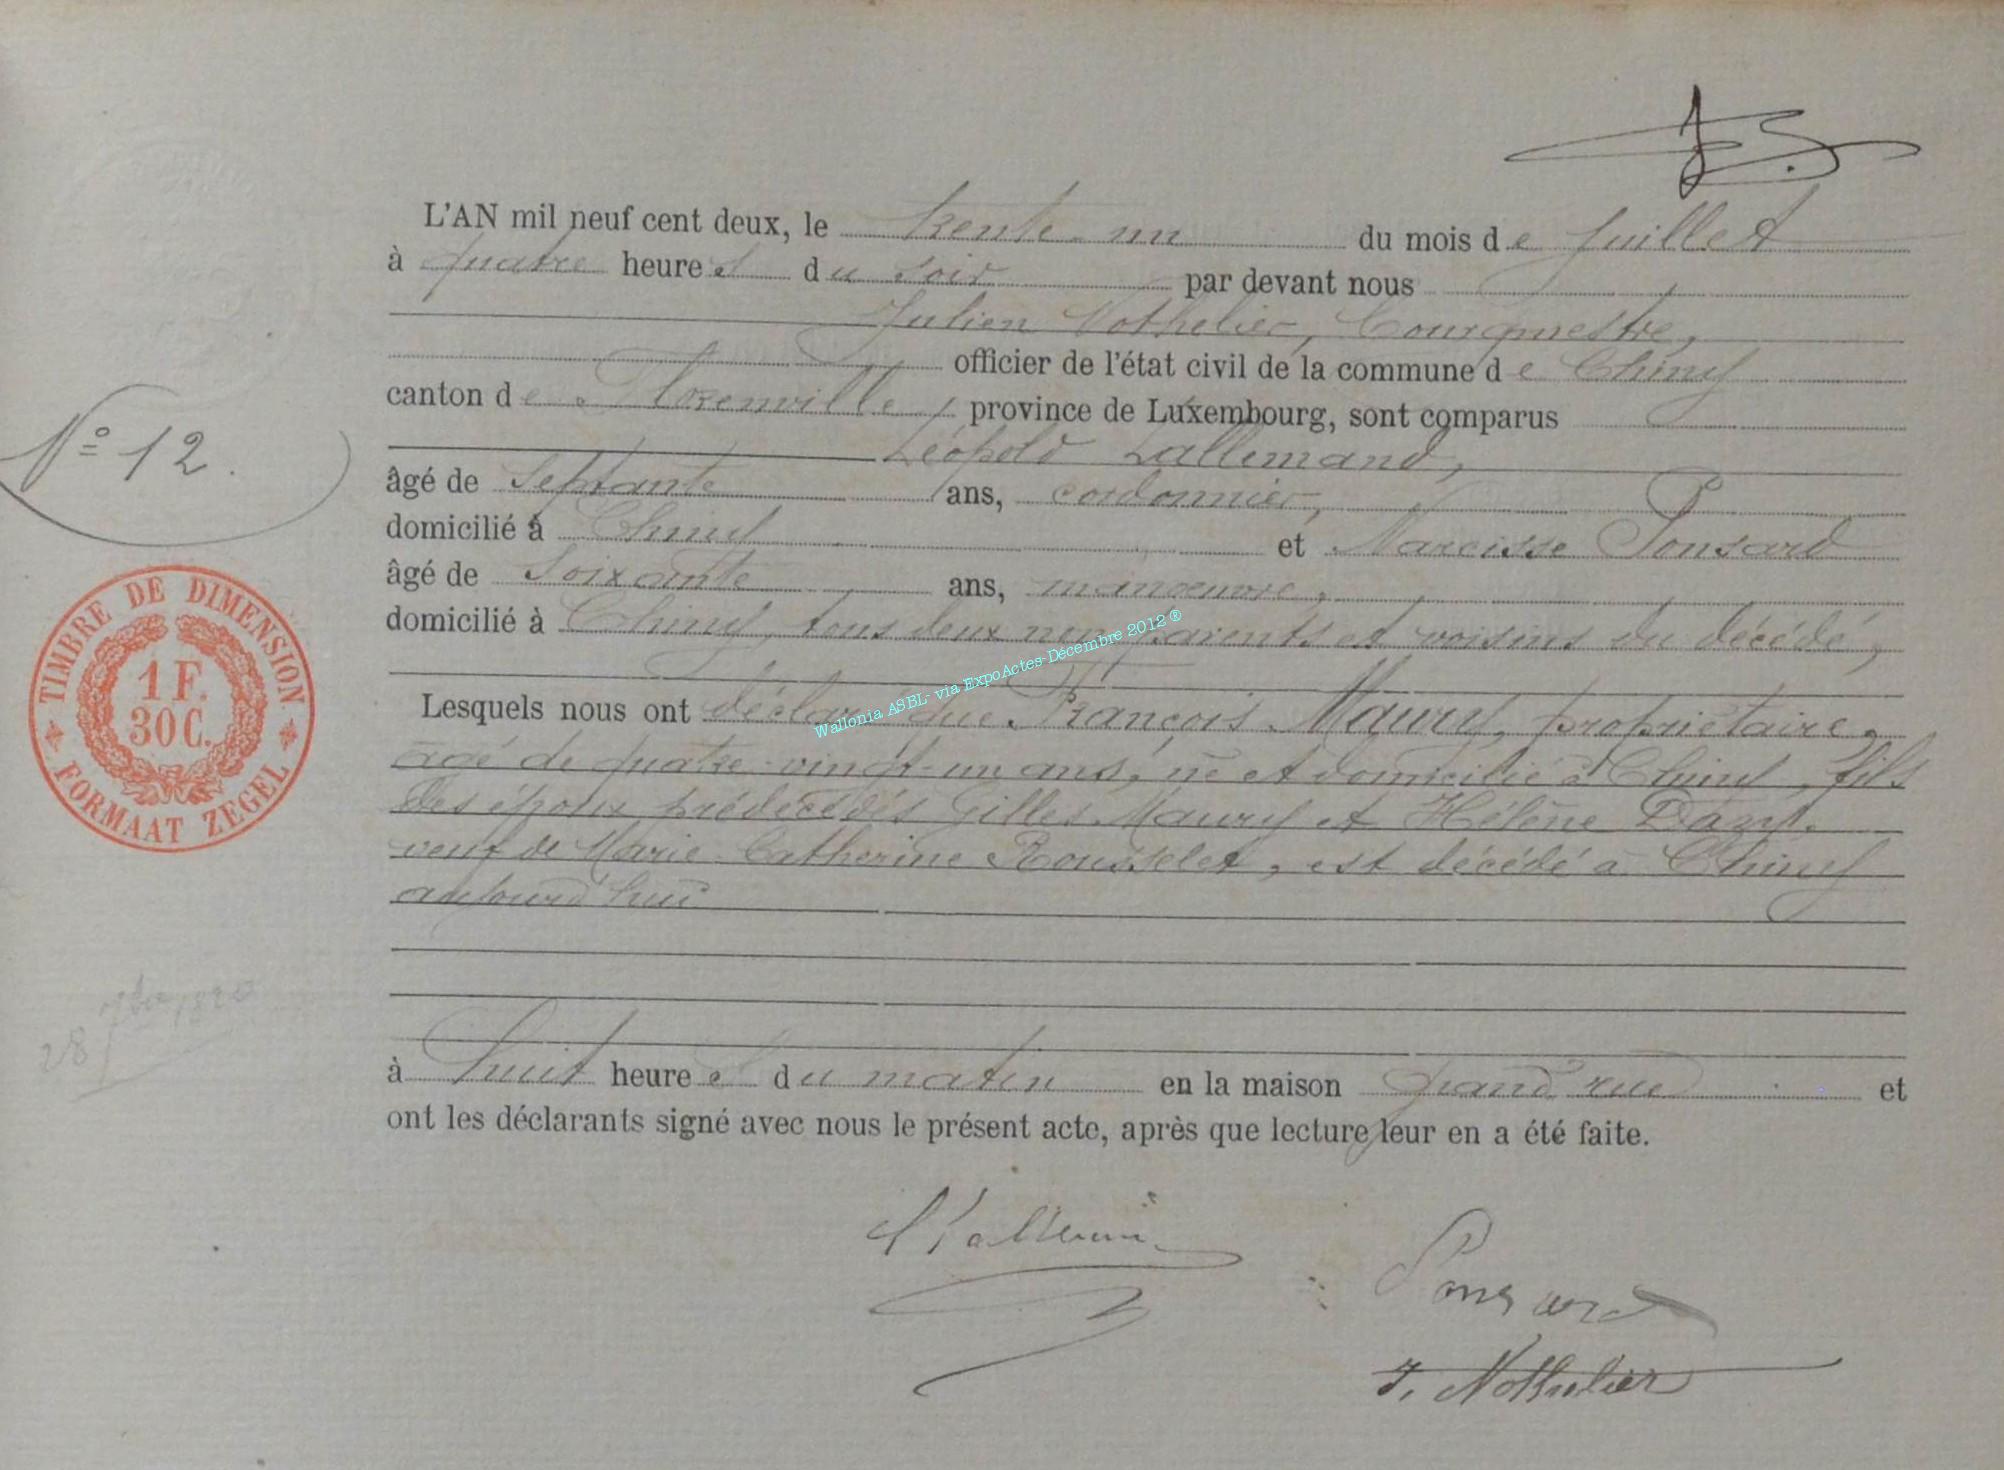 L'AN mil neuf cent deux, le trente-un du mois de Juillet
à quatre heures du soir par devant nous
Julien Nothelier, Bourgmestre,
officier de l'état civil de la commune de Chiny
canton de Florenville, province de Luxembourg, sont comparus
Léopold Lallemand,
N° 12.
âgé de septante ans, cordonnier,
domicilié à Chiny et Narcisse Ponsard
âgé de soixante ans, manoeuvre,
domicilié à Chiny, tous deux non parents et voisins du décédé,
Wallonia ASBL- via ExpoActes-Décembre 2012 ®
TIMBRE DE DIMENSION
1 F.
30 C.
FORMAAT ZEGEL
Lesquels nous ont déclaré que François Maury, propriétaire,
âgé de quatre-vingt-un ans, né et domicilié à Chiny, fils
des époux prédécédés Gilles Maury et Hélène Dazy,
veuf de Marie-Catherine Rousselet, est décédé à Chiny
aujourd'hui
28 7bre 1820
à huit heures du matin en la maison grand'rue et
ont les déclarants signé avec nous le présent acte, après que lecture leur en a été faite.
Ponsard
J. Nothelier